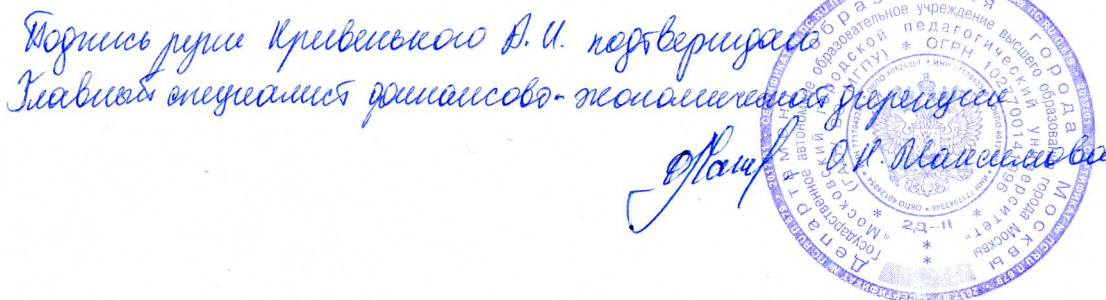 Подпись руки Кривенького А. И. подтверждаю
Главный специалист финансово-экономической дирекции
О.Н. Максимова
Департамент образования города Москвы
Государственное автономное образовательное учреждение высшего образования города Москвы
«Московский городской педагогический университет»
(ГАОУ ВО МГПУ) * ОГРН 1027700141996
* ИНН 7717043346 * ОКПО 40125054
2Д-11